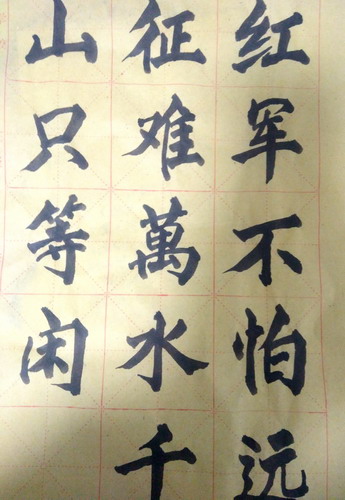 红军不怕远
征难萬水千
山只等闲